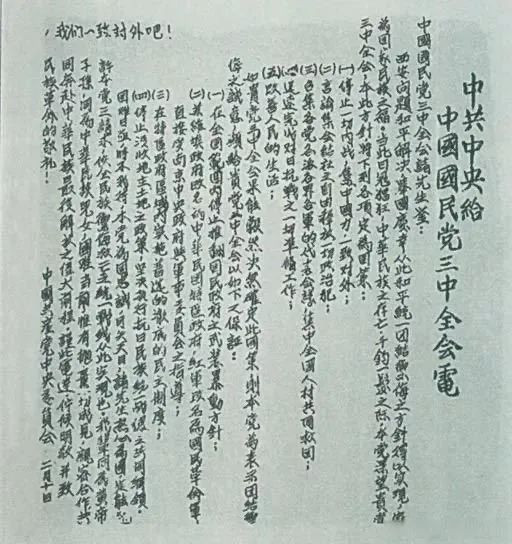 我們一致对外吧!
中共中央給
中國國民党三中全会電
中國國民党三中全会諸先生鑒:
西安問題和平解决,舉國慶幸,从此和平統一团結禦侮之方針得以实現,实
為國家民族之福。当此日寇猖狂,中華民族之存亡千鈞一髮之际,本党深望貴党
三中全会,本此方針,將下列各項定為國策:
(一)停止一切內战,集中國力,一致对外;
(二)言論集会結社之自由,釋放一切政治犯;
(三)召集各党各派各界各軍的代表会議,集中全國人材,共同救國;
(四)迅速完成对日抗戰之一切準備工作;
(五)改善人民的生活;
如貴党三中全会果能毅然决然確定此國策,則本党為表示团結禦
侮之誠意,願給貴党三中全会以如下之保証:
(一)在全國範圍內停止推翻國民政府之武裝暴動方針;
(二)蘇維埃政府改名為中華民國特區政府,紅軍改名為國民革命軍,
直接受南京中央政府與軍事委員会之指導;
(三)在特區政府區域內实施普選的徹底的民主制度;
(四)停止沒收地主土地之政策,坚决执行抗日民族統一战綫之共同綱領。
國难亟迫,時不我待,本党為國忠誠,可矢天日,諸先生热心為國,定能允
許本党之請求,使全民族禦侮救亡之統一戰綫从此实現也。我輩同為黃帝
子孫,同為中華民族兒女,國难当前,惟有抛棄一切成見,親密合作,共
同奔赴中華民族最後解放之偉大前程。謹此電達,佇候明教,並致
民族革命的敬礼!
中國共產党中央委員会 二月十日